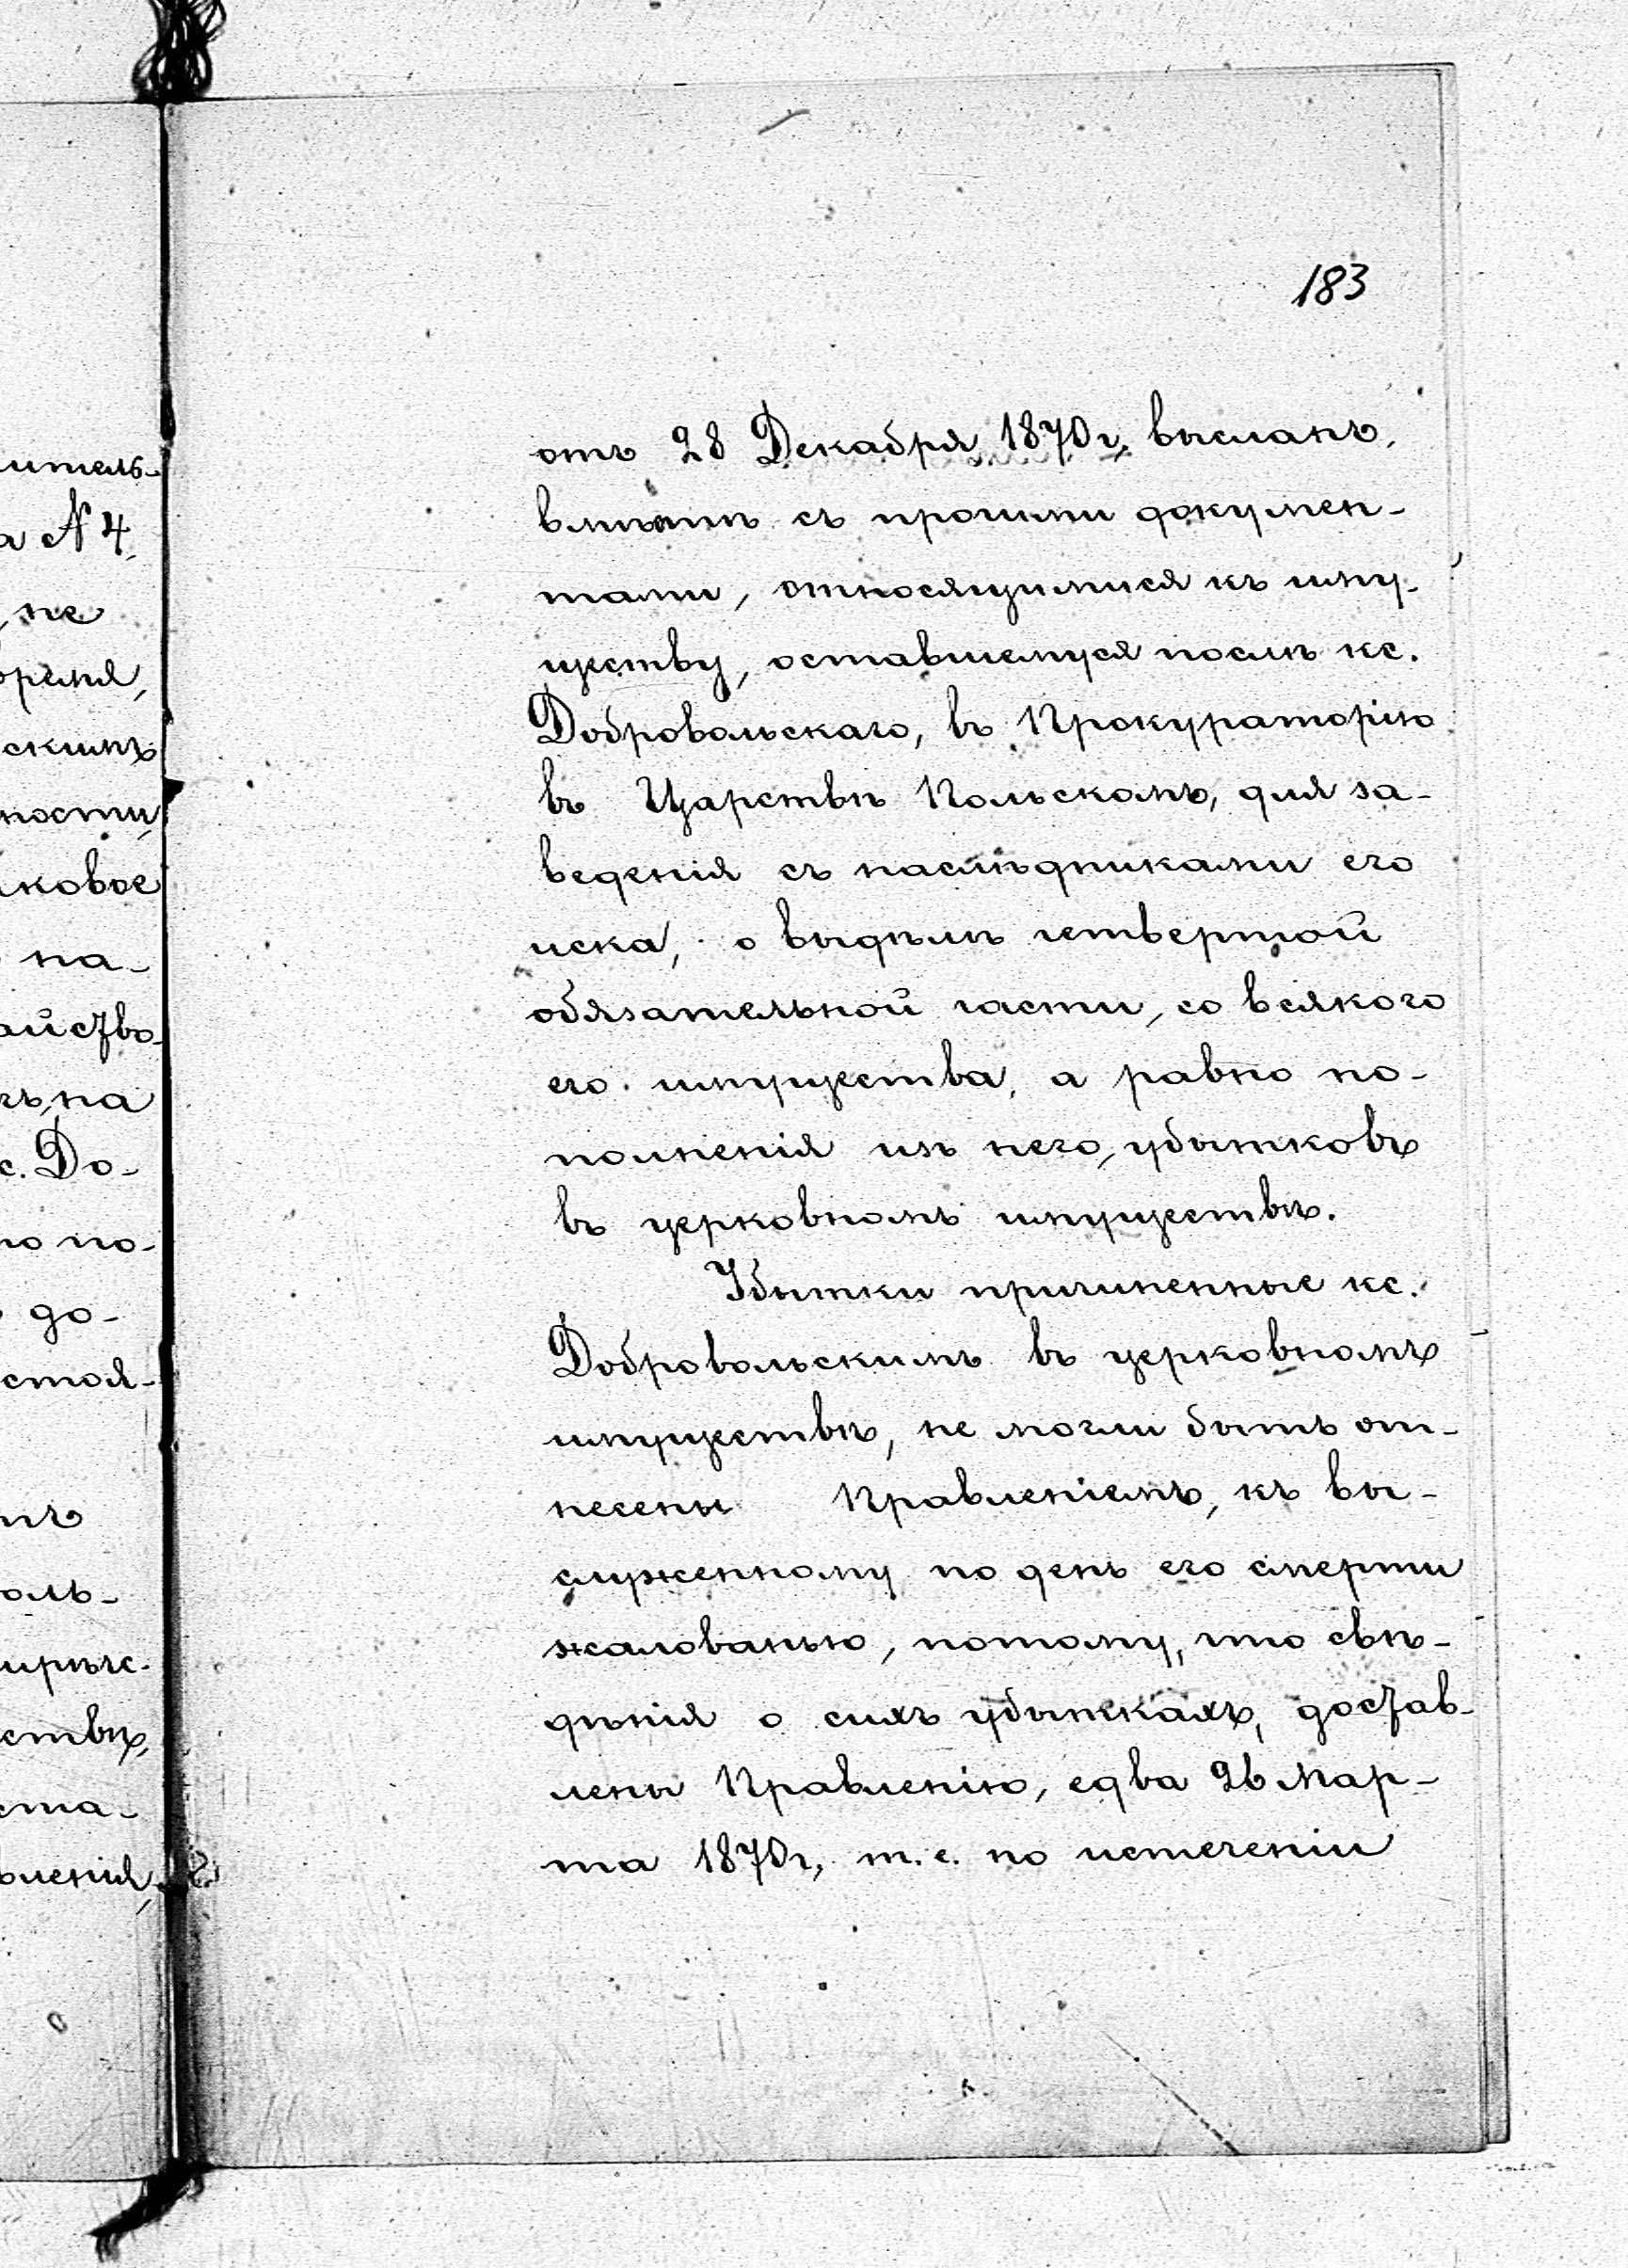 183
отъ 28 Декабря 1870 г, высланъ,
вмѣстѣ съ прочими докумен-
тами, относящимися къ иму-
ществу, оставшемуся послѣ кс.
Добровольскаго, въ Прокураторію
въ Царствѣ Польскомъ, для за-
веденія съ наслѣдниками его
иска, о выдѣлѣ четвертой
обязательной части, со всякого
его имущества, а равно по-
полненія изъ него, убытковъ
въ церковномъ имуществѣ.
Убытки причиненные кс.
Добровольскимъ въ церковномъ
имуществѣ, не могли быть от-
несены Правленіемъ, къ вы-
служенному по день его смерти
жалованью, потому, что свѣ-
дѣнія о сихъ убыткахъ, достав-
лены Правленію, едва 26 Мар-
та 1870 г, т. е. по истеченіи
итель-
а № 4,
не
скимъ
ности,
ковое
на-
айство-
на
с. До-
но по-
до-
стоя-
оль-
ствѣ,
ста-
вленія,